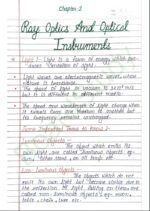 Chapter-2
Ray Optics And Optical
Instruments
Light :- Light is a form of energy which produces
Light waves are electromagnetic waves, whose
The speed of light in vaccum is
but it is different in different media.
The speed and wavelength of light change when
it travels from one medium to another but
its frequency remains unchanged.
Some Important Terms
Luminous Objects :-
The object which emits its
own light, are called luminous objects eg-
Sun, other stars, an oil lamp etc.
Non-Luminous Objects :-
The objects which do not
emit its own light but become visible due to
the reflection of light falling on them, are
called non-luminous objects eg- moon,
table, chair, tree etc.